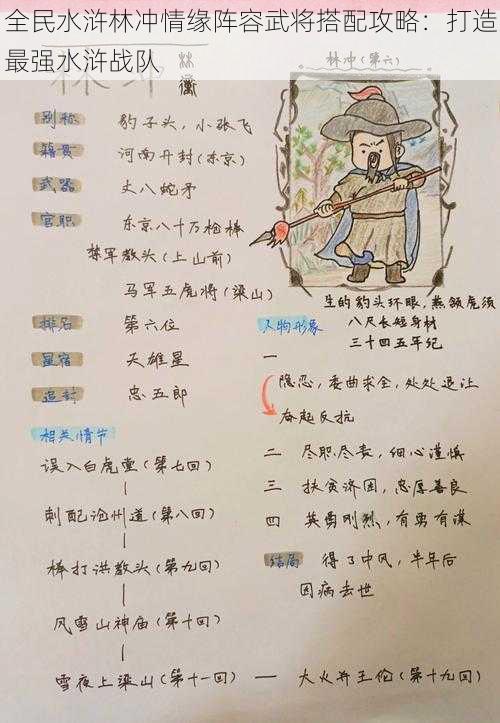 全民水浒林冲情缘阵容武将搭配攻略：打造
最强水浒战队
林冲
林
衝
林冲（第六）
别称 豹子头，小张飞
籍贯 河南开封（东京）
武器 丈八蛇矛
官职 东京八十万枪棒
禁军教头（上山前）
马军五虎将（梁山）
排名 第六位
星宿 天雄星
追封 忠五郎
相关情节
误入白虎堂（第七回）
刺配沧州道（第八回）
棒打洪教头（第九回）
风雪山神庙（第十回）
雪夜上梁山（第十一回）— 大火并王伦（第十九回）
生的豹头环眼，燕颔虎须
八尺长短身材
三十四五年纪
人物形象
一
隐忍，委曲求全，处处退让
奋起反抗
二 尽职尽责，细心谨慎
三 扶贫济困，忠厚善良
四 英勇刚烈，有勇有谋
结局 得了中风，半年后
因病去世